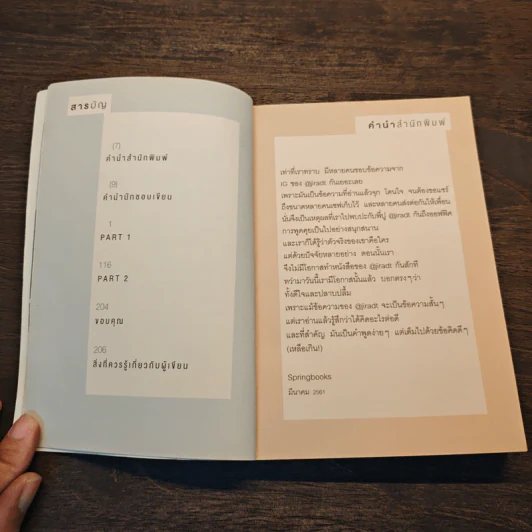 สารบัญ
(7)
คำนำสำนักพิมพ์
(9)
คำนำนักชอบเขียน
1
PART 1
116
PART 2
204
ขอบคุณ
206
สิ่งที่ควรรู้เกี่ยวกับผู้เขียน
คำนำสำนักพิมพ์
เท่าที่เราทราบ มีหลายคนชอบข้อความจาก
IG ของ @jiradt กันเยอะเลย
เพราะมันเป็นข้อความที่อ่านแล้วจุก โดนใจ จนต้องขอแชร์
ถึงขนาดหลายคนเซฟเก็บไว้ และหลายคนส่งต่อกันให้เพื่อน
นั่นจึงเป็นเหตุผลที่เราไปพบปะกับพี่ปู @jiradt กันถึงออฟฟิศ
การพูดคุยเป็นไปอย่างสนุกสนาน
และเราก็ได้รู้ว่าตัวจริงของเขาคือใคร
แต่ด้วยปัจจัยหลายอย่าง ตอนนั้นเรา
จึงไม่มีโอกาสทำหนังสือของ @jiradt กันสักที
ทว่ามาวันนี้เรามีโอกาสนั้นแล้ว บอกตรงๆว่า
ทั้งดีใจและปลาบปลื้ม
เพราะแม้ข้อความของ @jiradt จะเป็นข้อความสั้นๆ
แต่เราอ่านแล้วรู้สึกว่าได้คิดอะไรต่อดี
และที่สำคัญ มันเป็นคำพูดง่ายๆ แต่เต็มไปด้วยข้อคิดดีๆ
(เหลือเกิน!)
Springbooks
มีนาคม 2561